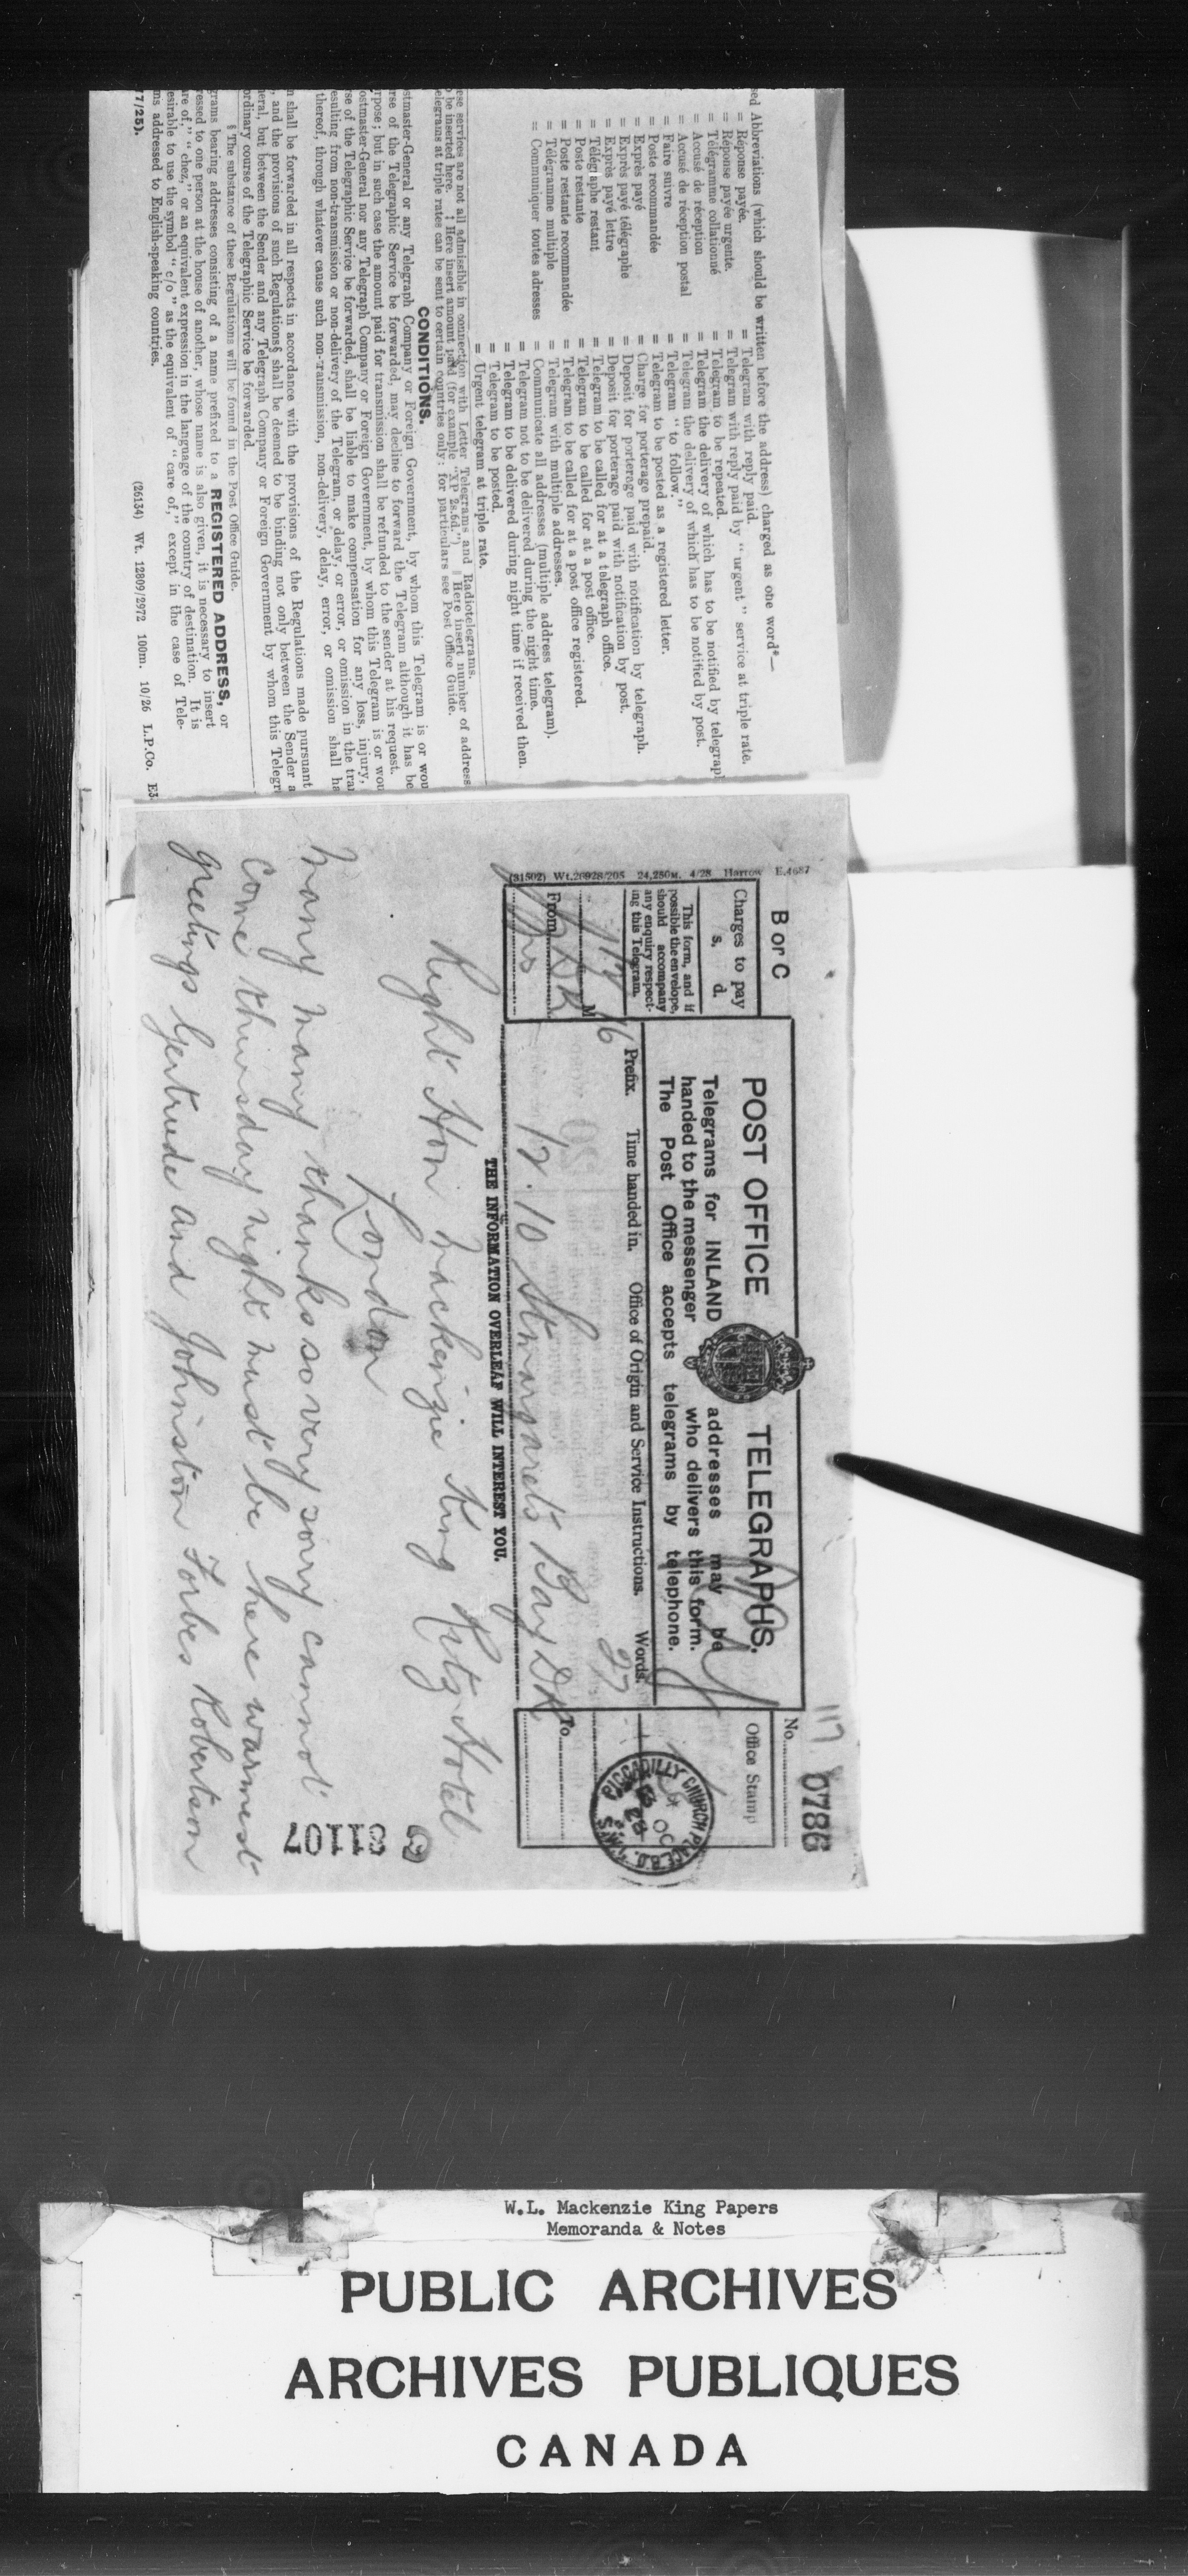 sed Abbreviations (which should be written before the address) charged as one word*—
= Réponse payée. = Telegram with reply paid.
= Réponse payée urgente. = Telegram with reply paid by "urgent" service at triple rate.
= Télégramme collationné = Telegram to be repeated.
= Accusé de réception = Telegram the delivery of which has to be notified by telegraph
= Accusé de réception postal = Telegram the delivery of which has to be notified by post.
= Faire suivre = Telegram "to follow."
= Poste recommandée = Telegram to be posted as a registered letter.
= Exprès payé = Charge for porterage prepaid.
= Exprès payé télégraphe = Deposit for porterage paid with notification by telegraph.
= Exprès payé lettre = Deposit for porterage paid with notification by post.
= Télégraphe restant = Telegram to be called for at a telegraph office.
= Poste restante = Telegram to be called for at a post office.
= Poste restante recommandée = Telegram to be called for at a post office registered.
= Télégramme multiple = Telegram with multiple addresses.
= Communiquer toutes adresses = Communicate all addresses (multiple address telegram).
= Telegram not to be delivered during the night time.
= Telegram to be delivered during night time if received then.
= Telegram to be posted.
= Urgent telegram at triple rate.
ese services are not all admissible in connection with Letter Telegrams and Radiotelegrams.
o be inserted here. ‡ Here insert amount paid (for example "XP 2s.6d.") ‖ Here insert number of address
elegrams at triple rates can be sent to certain countries only: for particulars see Post Office Guide.
CONDITIONS.
stmaster-General or any Telegraph Company or Foreign Government, by whom this Telegram is or wou
rse of the Telegraphic Service be forwarded, may decline to forward the Telegram although it has be
rpose; but in such case the amount paid for transmission shall be refunded to the sender at his request.
ostmaster-General nor any Telegraph Company or Foreign Government, by whom this Telegram is or wou
se of the Telegraphic Service be forwarded, shall be liable to make compensation for any loss, injury,
esulting from non-transmission or non-delivery of the Telegram, or delay, or error, or omission in the tra
thereof, through whatever cause such non-transmission, non-delivery, delay, error, or omission shall ha
n shall be forwarded in all respects in accordance with the provisions of the Regulations made pursuant
, and the provisions of such Regulations§ shall be deemed to be binding not only between the Sender a
neral, but between the Sender and any Telegraph Company or Foreign Government by whom this Telegr
ordinary course of the Telegraphic Service be forwarded.
§ The substance of these Regulations will be found in the Post Office Guide.
grams bearing addresses consisting of a name prefixed to a REGISTERED ADDRESS, or
ressed to one person at the house of another, whose name is also given, it is necessary to insert
are of," "chez," or an equivalent expression in the language of the country of destination. It is
esirable to use the symbol "c/o" as the equivalent of "care of," except in the case of Tele-
ms addressed to English-speaking countries.
7/25). (26134) Wt. 12809/2972 100m. 10/26 L.P.Co. E3
(31502) Wt.20928/205 24,250M. 4/28 Harrow E.4687
B or C
Charges to pay
s. d.
This form, and if
possible the envelope,
should accompany
any enquiry respect-
ing this Telegram.
From
POST OFFICE TELEGRAPHS.
Telegrams for INLAND addresses may be
handed to the messenger who delivers this form.
The Post Office accepts telegrams by telephone.
Prefix. Time handed in. Office of Origin and Service Instructions. Words.
27
16
12.10 St Margarets Bay DK
No.
117 0786
Office Stamp
PICCADILLY CHURCH PLACE B.O. S.W.1
OC 28
To
THE INFORMATION OVERLEAF WILL INTEREST YOU.
Right Hon Mackenzie King Ritz Hotel
London
Many many thanks so very sorry cannot
come thursday night must be here warmest
greetings Gertrude and Johnston Forbes Robertson
61107
W.L. Mackenzie King Papers
Memoranda & Notes
PUBLIC ARCHIVES
ARCHIVES PUBLIQUES
CANADA